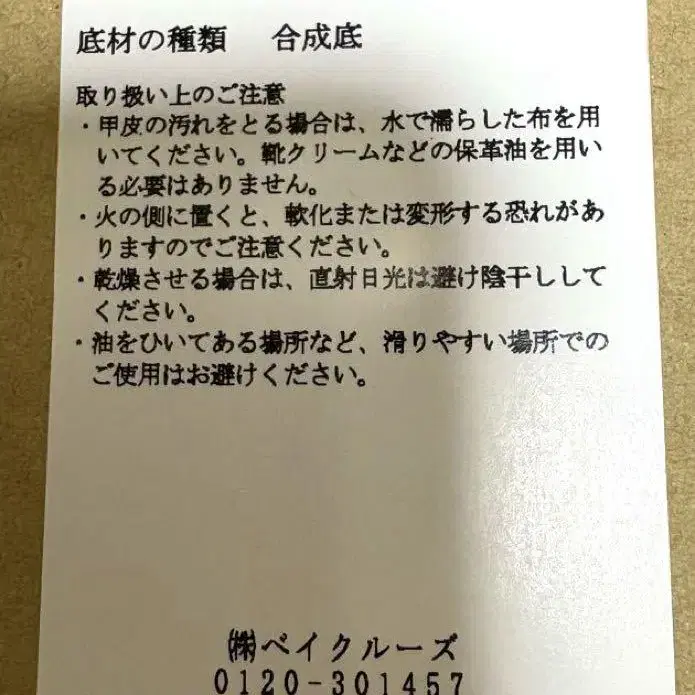 底材の種類　合成底
取り扱い上のご注意
・甲皮の汚れをとる場合は、水で濡らした布を用
いてください。靴クリームなどの保革油を用い
る必要はありません。
・火の側に置くと、軟化または変形する恐れがあ
りますのでご注意ください。
・乾燥させる場合は、直射日光は避け陰干しして
ください。
・油をひいてある場所など、滑りやすい場所での
ご使用はお避けください。
㈱ベイクルーズ
0120-301457